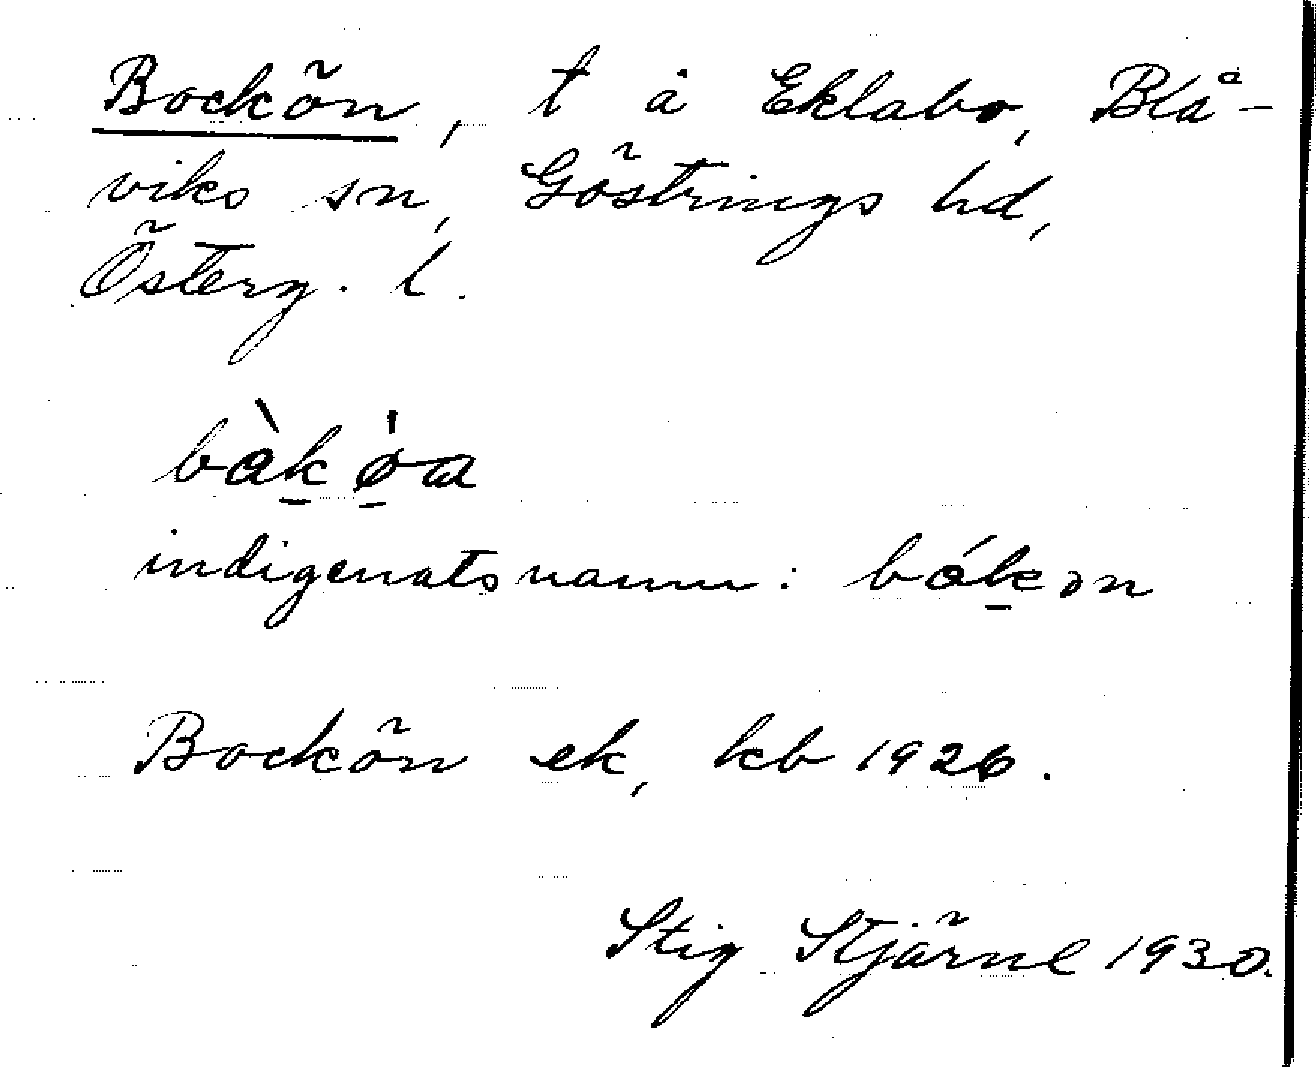 Bockön, t å Eklabo, Blå-
viks sn, Göstrings hd,
Österg. l.
bàk ø̀a
indigenatsnamn: bákon
Bockön ek, kb 1926.
Stig Stjärne 1930.